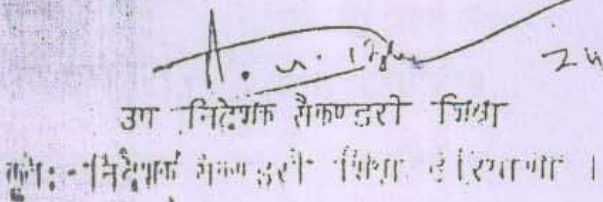 24
उप निदेशक सैकण्डरी शिक्षा
कृते:- निदेशक सैकण्डरी शिक्षा हरियाणा ।